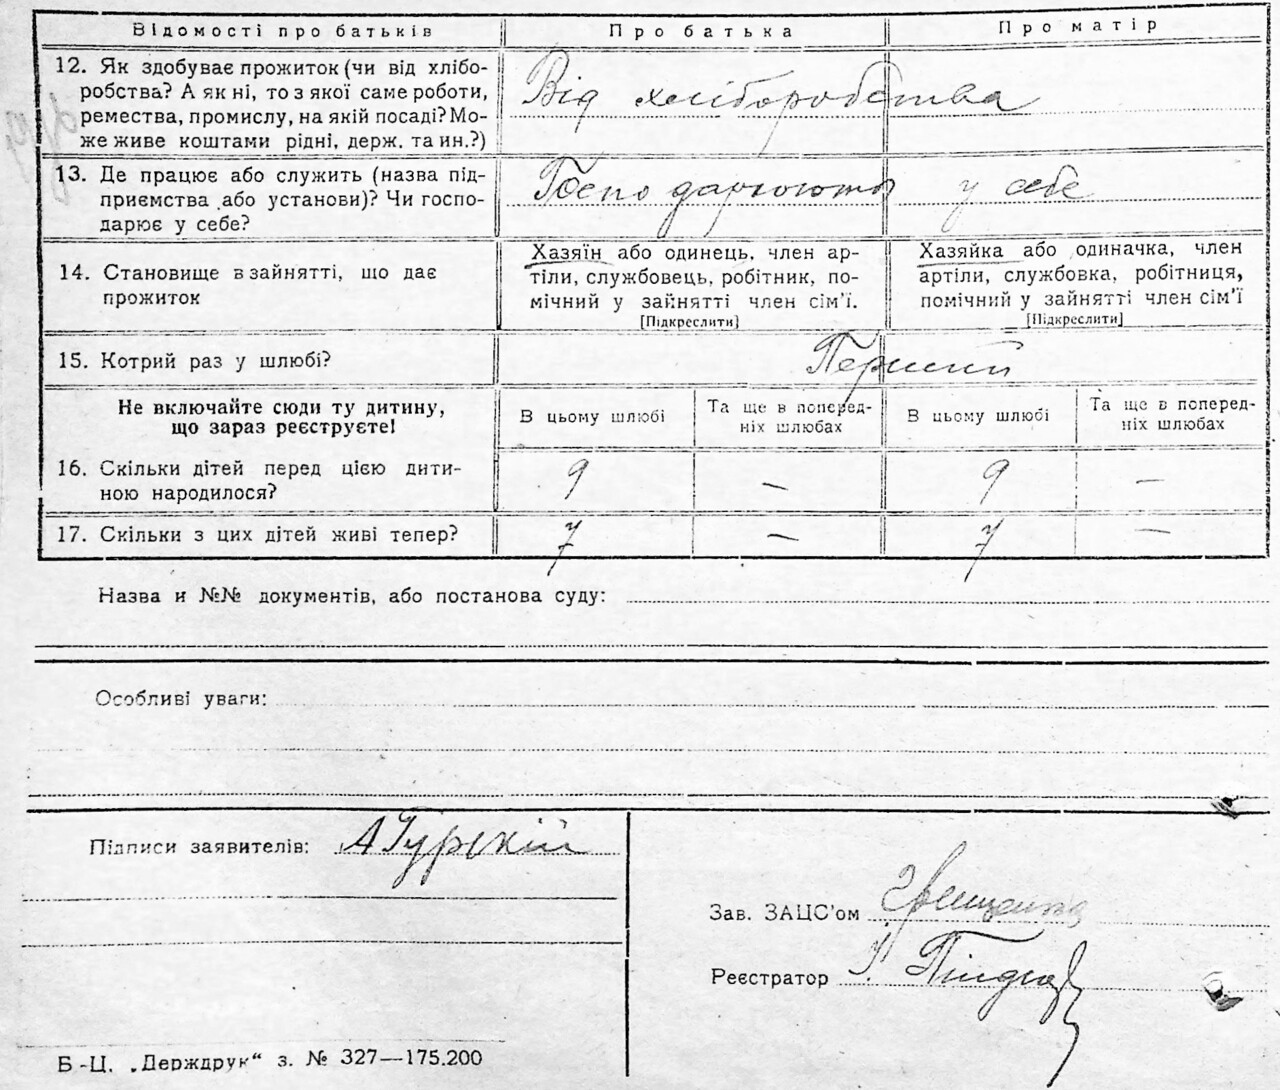 Відомості про батьків Про батька Про матір
12. Як здобуває прожиток (чи від хлібо-
робства? А як ні, то з якої саме роботи,
ремества, промислу, на якій посаді? Мо-
же живе коштами рідні, держ. та ин.?)
Від хліборобства
13. Де працює або служить (назва під-
приємства або установи)? Чи госпо-
дарює у себе?
Господарюють у себе
14. Становище в зайнятті, що дає
прожиток
Хазяїн або одинець, член ар-
тіли, службовець, робітник, по-
мічний у зайнятті член сім'ї.
[Підкреслити]
Хазяйка або одиначка, член
артіли, службовка, робітниця,
помічний у зайнятті член сім'ї
[Підкреслити]
15. Котрий раз у шлюбі? Перший
Не включайте сюди ту дитину,
що зараз реєструєте!
В цьому шлюбі
Та ще в поперед-
ніх шлюбах
В цьому шлюбі
Та ще в поперед-
ніх шлюбах
16. Скільки дітей перед цією дити-
ною народилося?
9 — 9 —
17. Скільки з цих дітей живі тепер? 7 — 7 —
Назва и №№ документів, або постанова суду:
Особливі уваги:
Підписи заявителів: А Гурскій
Зав. ЗАЦС'ом
Реєстратор
Б-Ц. „Держдрук“ з. № 327—175.200